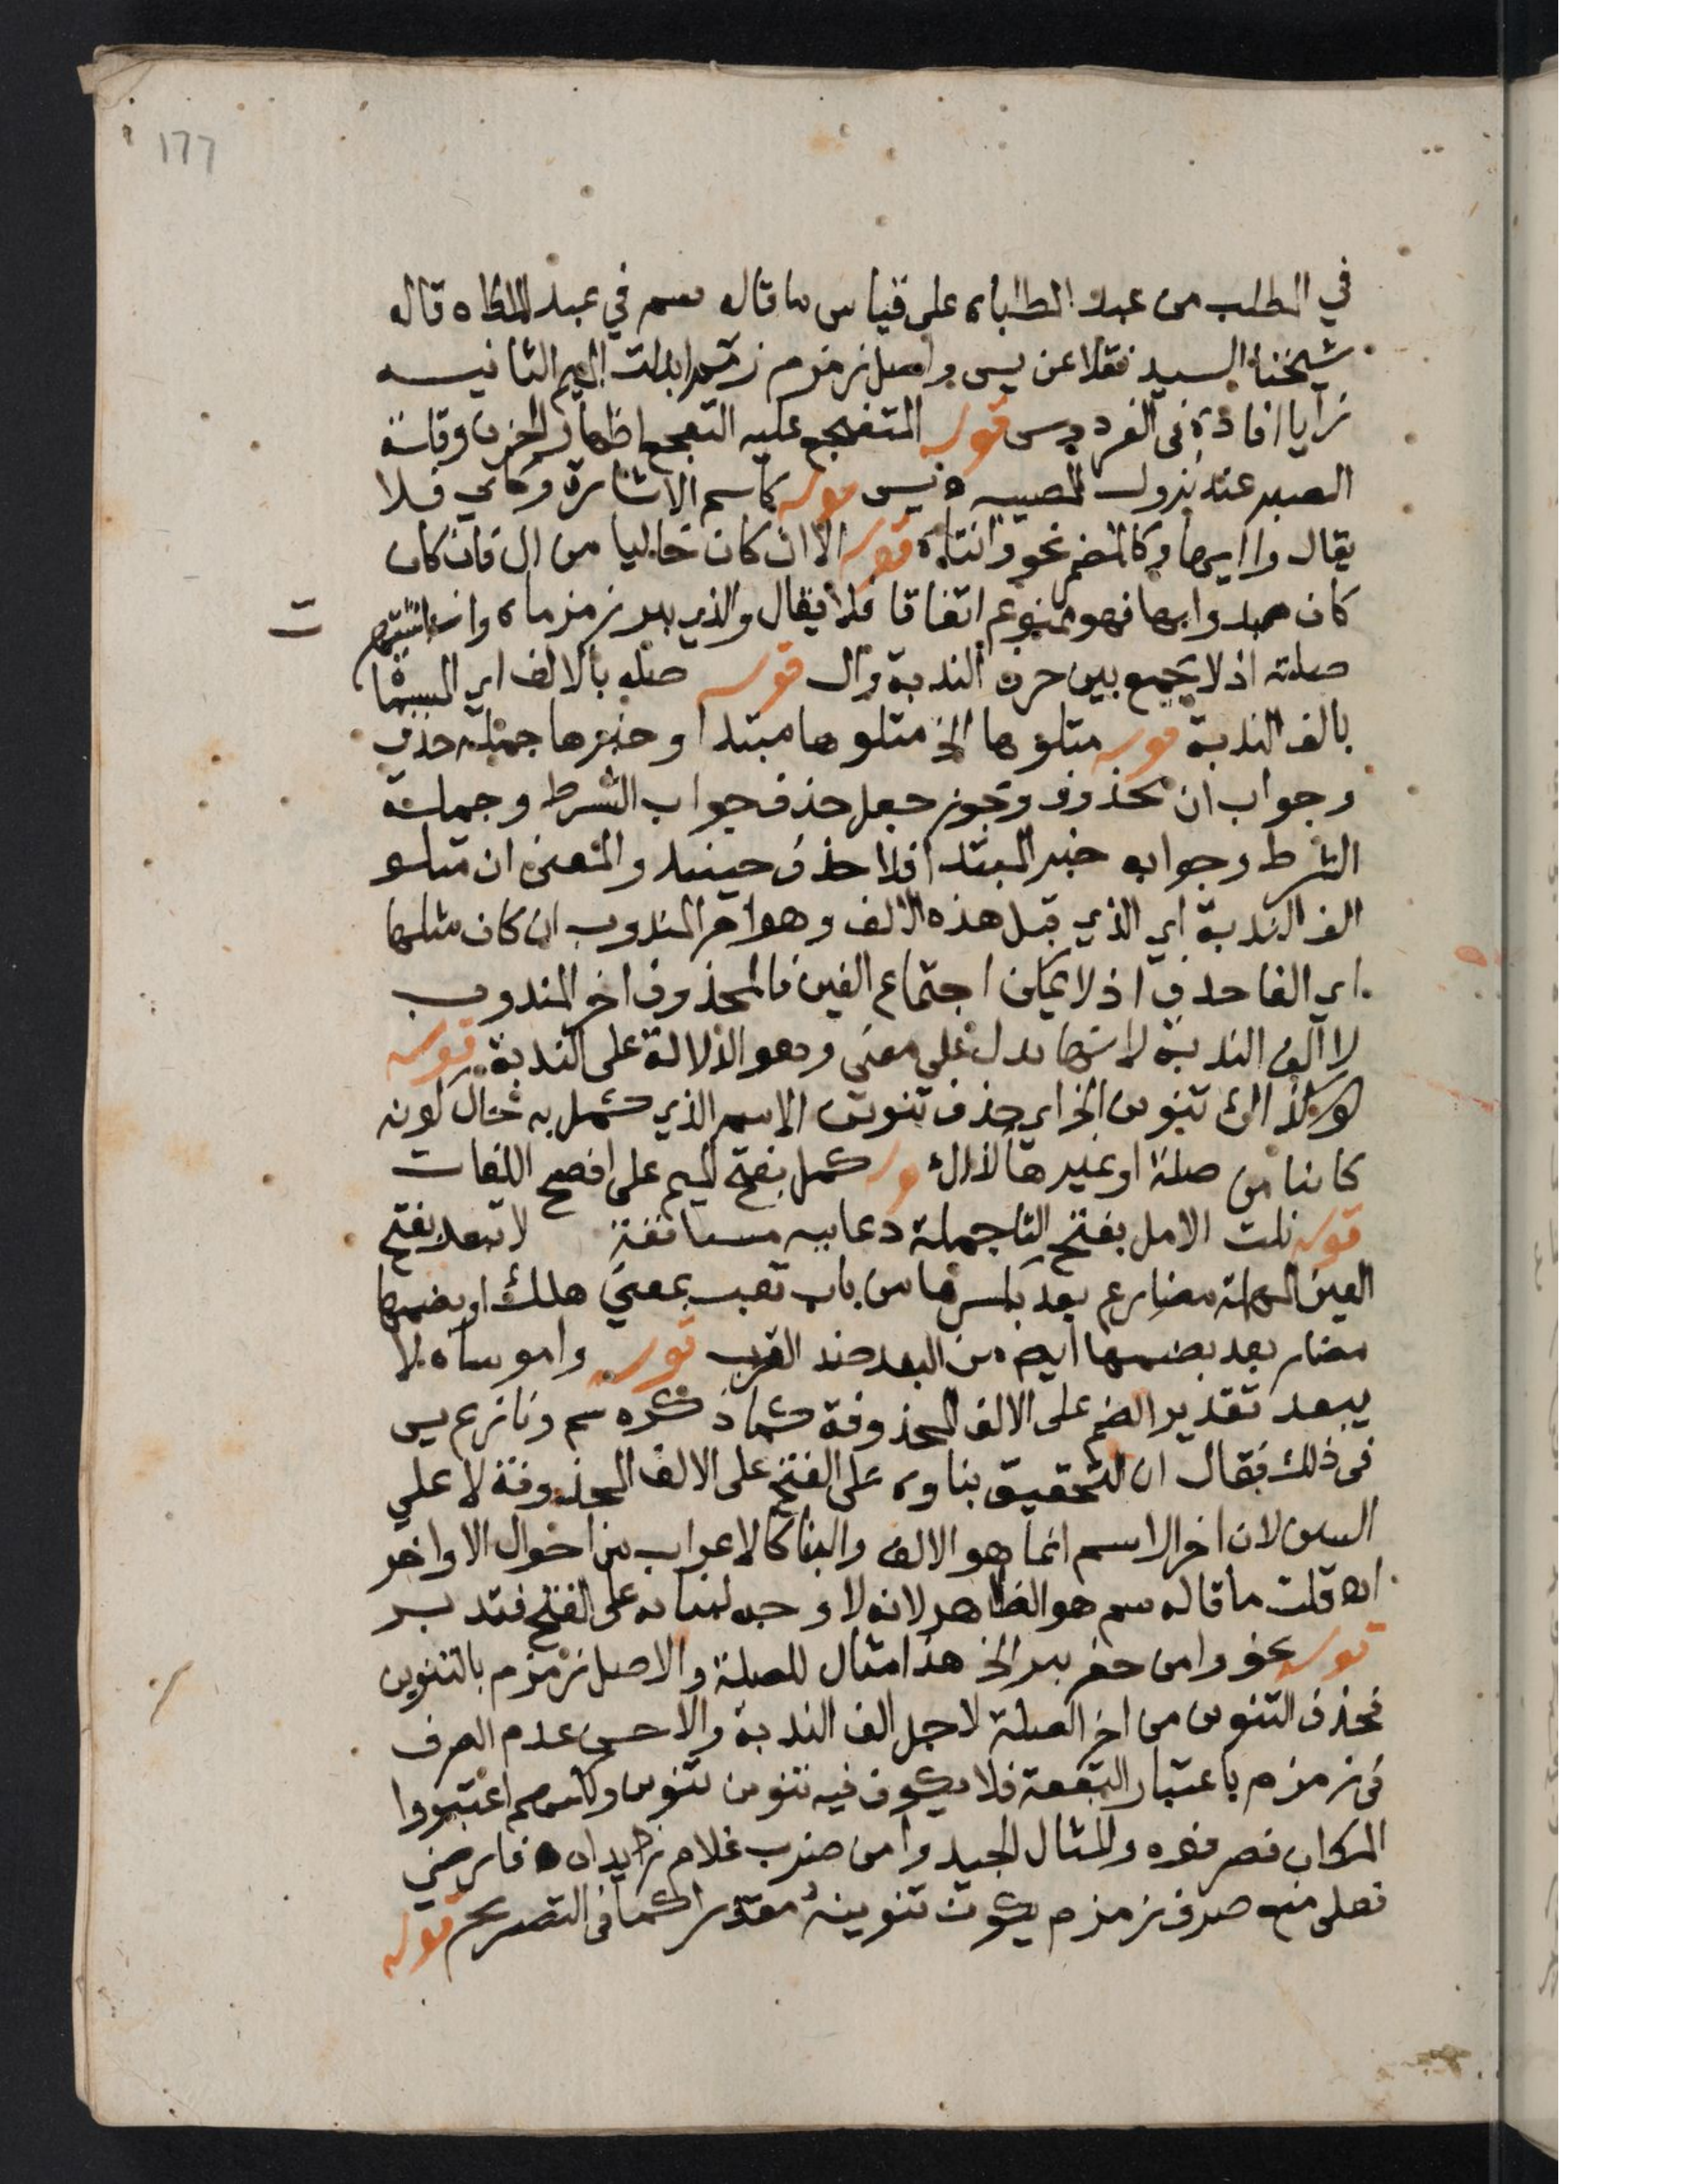 177
في المطلب من عبد المطلباه على قياس ما قاله سم في عبد الملطاه قاله
شيخنا السيد نقلا عن يس واصل زمزم زمم ابدلت الميم الثانيه
زايا افاده في الفردوس قوله المتفجع عليه التفجع اظهار الحزن وقلة
الصبر عند نزول المصيبه ه يس قوله كاسم الاشارة وكاي فلا
يقال وا ايهاه وكالمضمر نحو وانتاه قوله الا ان كان خاليا من ال فان كان
كان مبدوا بها فهو ممنوع اتفاقا فلا يقال والذي بير زمزماه وان اشتهر
صلته اذ لا يجمع بين حرف الندبة وال قوله صله بالالف اي المسماة
بالف الندبة قوله متلوها الخ متلوها مبتدا وخبرها جملة حذف
وجواب ان محذوف ويجوز جعل حذف جواب الشرط وجملة
الشرط وجوابه خبر المبتدا فلا حذف حينيد والمعنى ان متلو
الف الندبة اي الذي قبل هذه الالف وهو اخر المندوب ان كان مثلها
اي الفا حذف اذ لا يمكن اجتماع الفين فالمحذوف اخر المندوب
لا الف الندبة لانها تدل على معنى وهو الدلالة على الندبة قوله
كذاك تنوين الخ اي حذف تنوين الاسم الذي كمل به حال كونه
كاينا من صلة او غيرها لذلك قوله كمل بفتح الميم على افصح اللغات
قوله نلت الامل بفتح التا جملة دعاييه مستانفة لا تبعد بفتح
العين المهملة مضارع بعد بكسرها من باب تعب بمعنى هلك او بضمها
مضار بعد بضمها ايض من البعد ضد القرب قوله واموساه لا
يبعد تقدير الضم على الالف المحذوفة كما ذكره سم ونازع يس
في ذلك فقال ان التحقيق بناوه على الفتح على الالف المحذوفة لا على
السين لان اخر الاسم انما هو الالف والبنا كالاعراب من احوال الاواخر
اه قلت ما قاله سم هو الظاهر لانه لا وجه لبنايه على الفتح فتدبر
قوله نحو وامن حفر بير الخ هذا مثال للصلة والاصل زمزم بالتنوين
فحذف التنوين من اخر الصلة لاجل الف الندبة والاحسن عدم الصرف
في زمزم باعتبار البقعة فلا يكون فيه تنوين تنوين وكانهم اعتبروا
المكان فصرفوه والمثال الجيد وامن ضرب غلام زايداه فارضي
فعلى منع صرف زمزم يكون تنوينه مقدرا كما في التصريح قوله